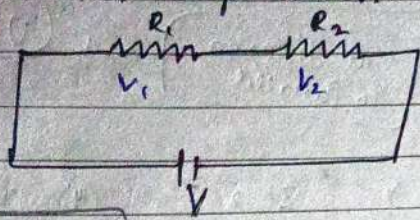 R₁ R₂
V₁ V₂
V